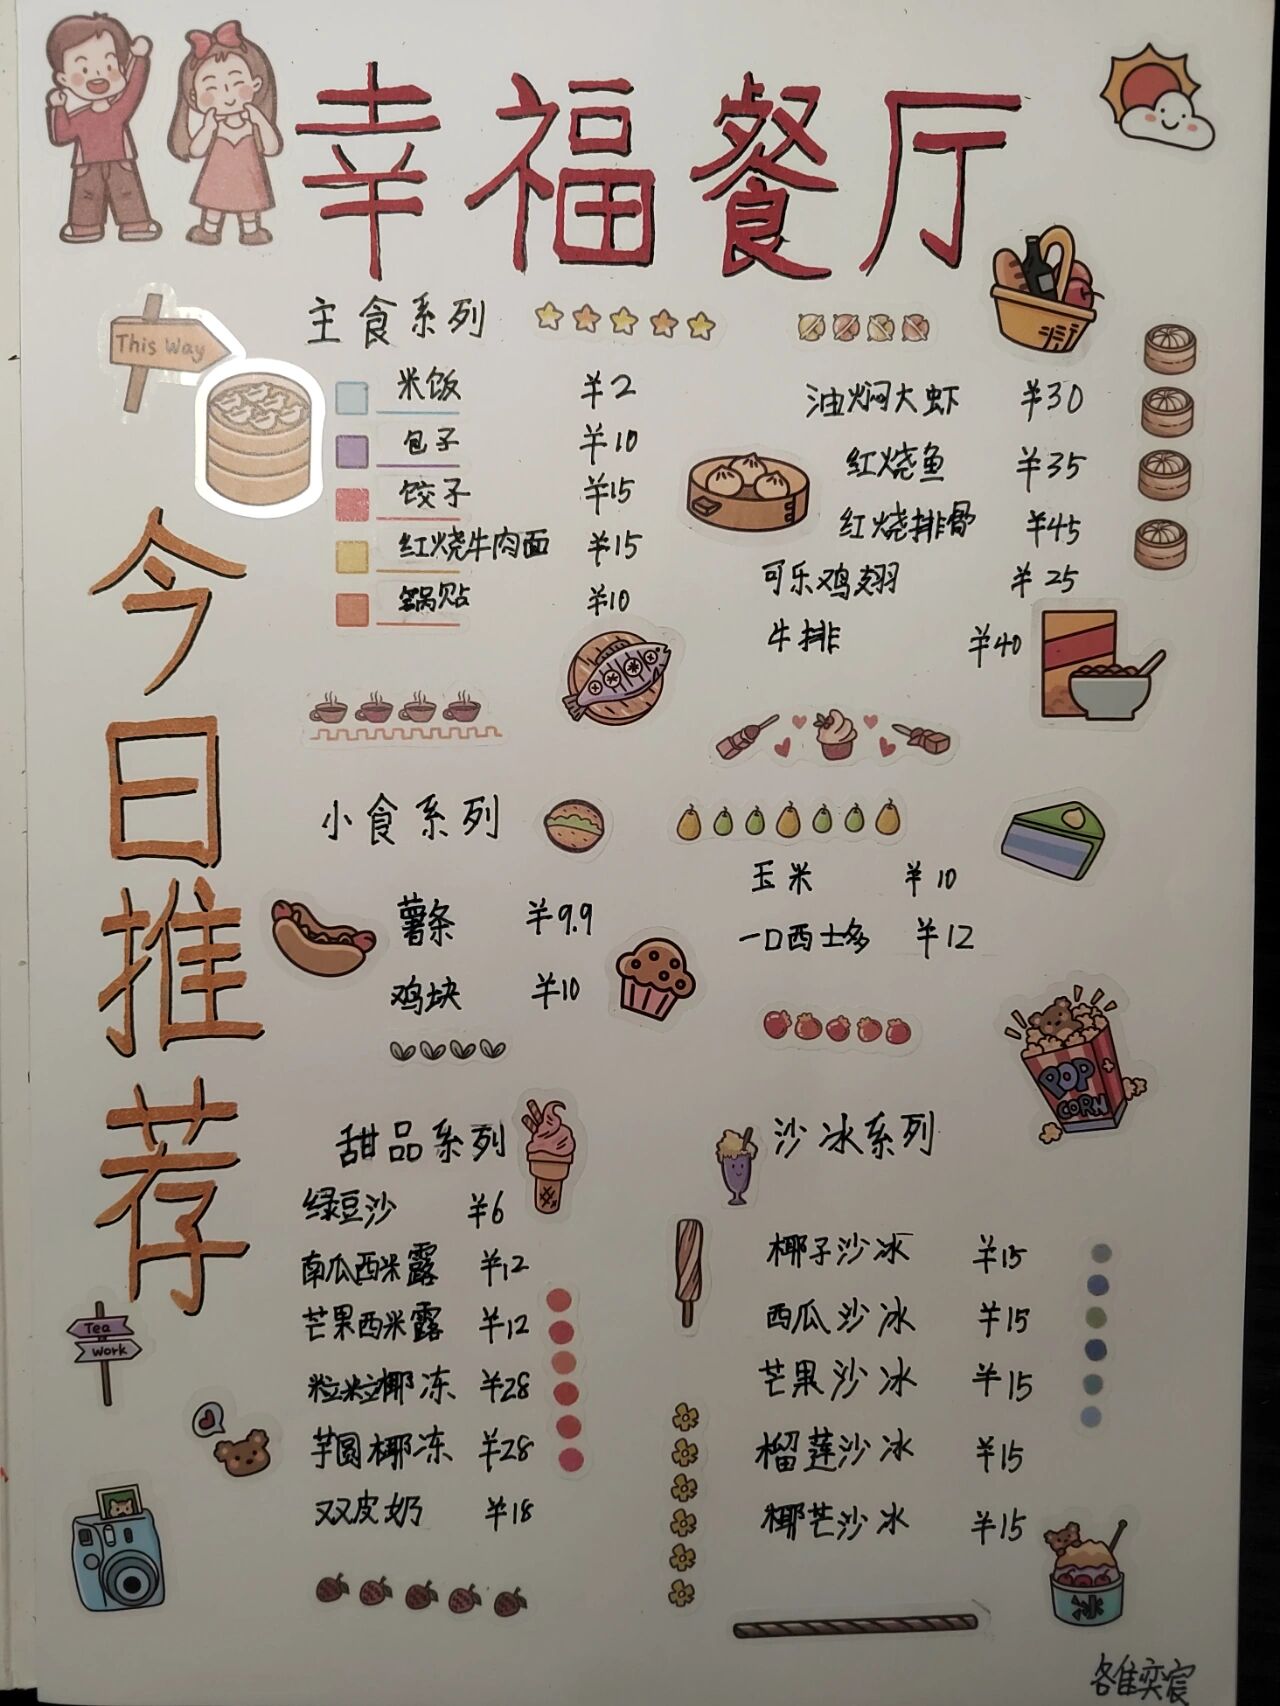 幸福餐厅
This Way
今日推荐
主食系列
米饭 ¥2
包子 ¥10
饺子 ¥15
红烧牛肉面 ¥15
锅贴 ¥10
油焖大虾 ¥30
红烧鱼 ¥35
红烧排骨 ¥45
可乐鸡翅 ¥25
牛排 ¥40
小食系列
薯条 ¥9.9
鸡块 ¥10
玉米 ¥10
一口西士多 ¥12
POP
CORN
甜品系列
绿豆沙 ¥6
南瓜西米露 ¥12
芒果西米露 ¥12
粒粒椰冻 ¥28
芋圆椰冻 ¥28
双皮奶 ¥18
沙冰系列
椰子沙冰 ¥15
西瓜沙冰 ¥15
芒果沙冰 ¥15
榴莲沙冰 ¥15
椰芒沙冰 ¥15
Tea
Work
冰
奕宸